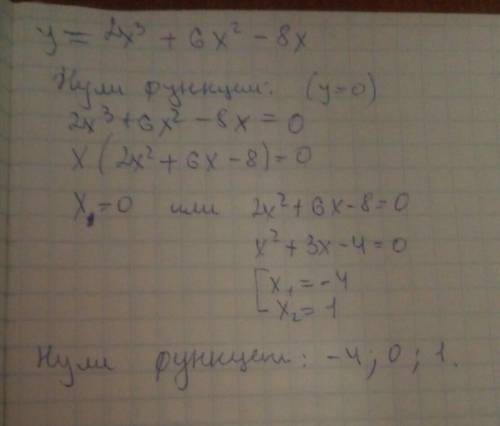 y = 2x³ + 6x² - 8x
Нули функции: (y=0)
2x³ + 6x² - 8x = 0
x(2x² + 6x - 8) = 0
x₁ = 0 или 2x² + 6x - 8 = 0
x² + 3x - 4 = 0
[x₁ = -4
x₂ = 1
Нули функции: -4; 0; 1.